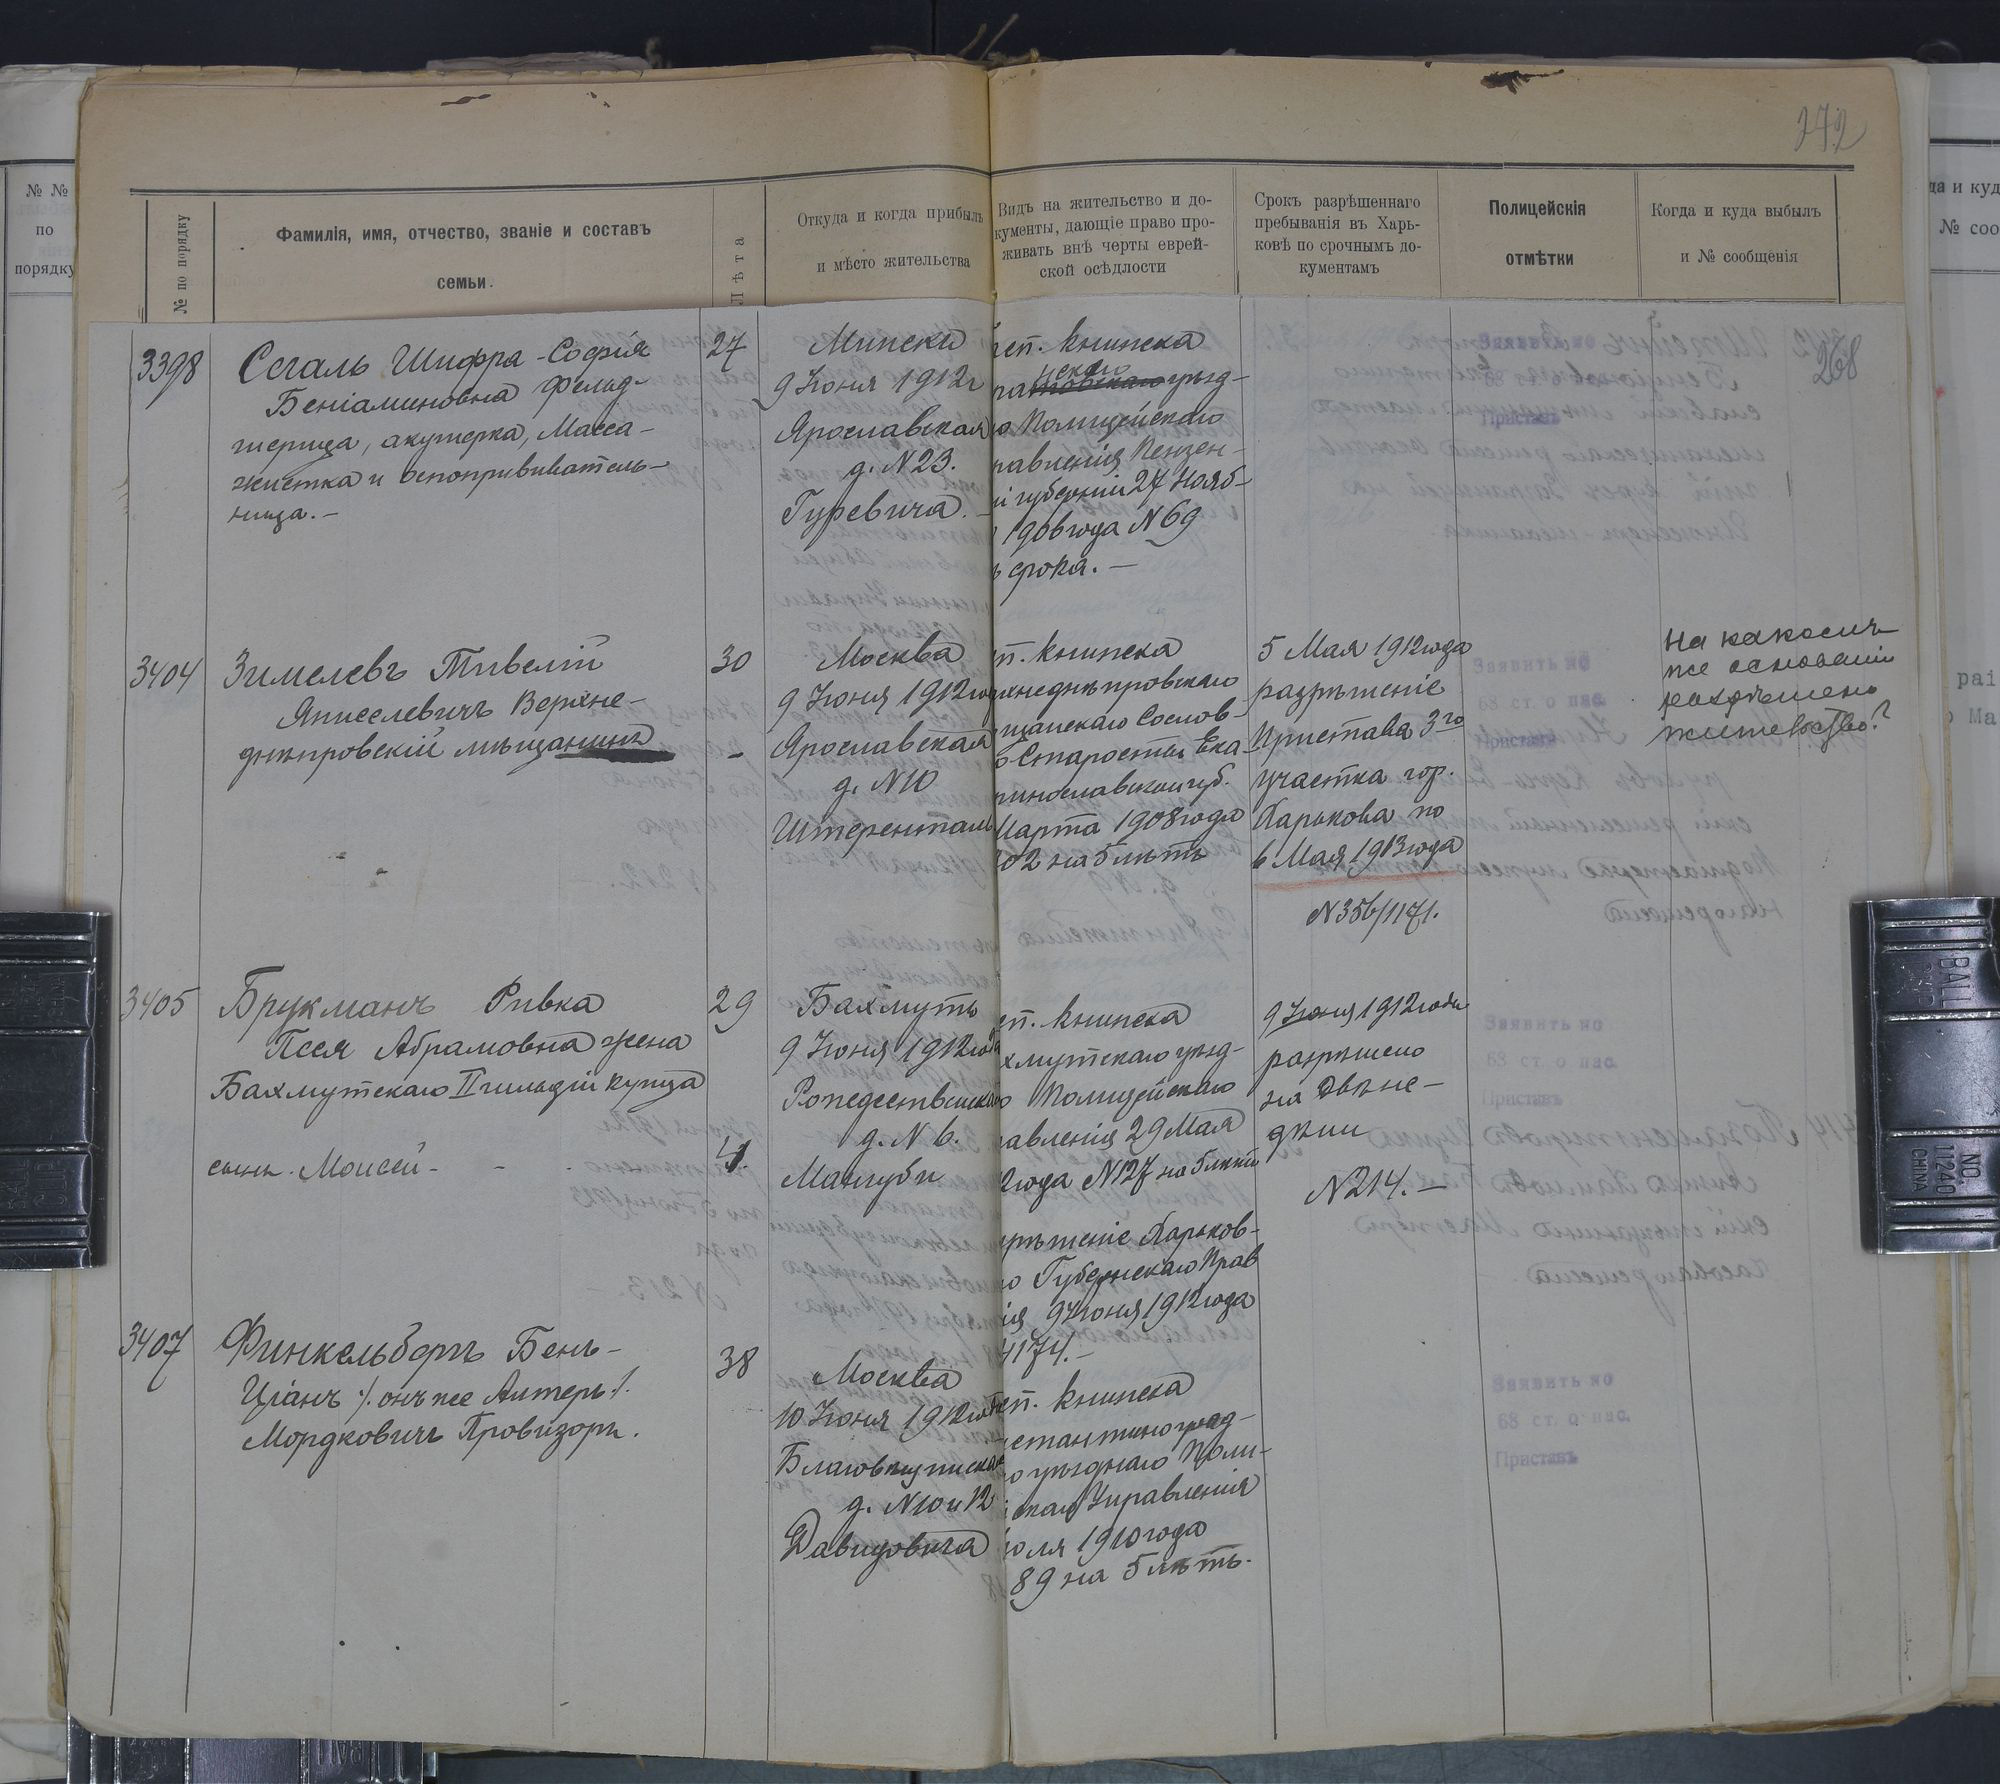 272
№ № по порядку
№ по порядку
Фамилія, имя, отчество, званіе и составъ
семьи.
Лѣта
Откуда и когда прибылъ
и мѣсто жительства
Видъ на жительство и до-
кументы, дающіе право про-
живать внѣ черты еврей-
ской осѣдлости
Срокъ разрѣшеннаго
пребыванія въ Харь-
ковѣ по срочнымъ до-
кументамъ
Полицейскія
отмѣтки
Когда и куда выбылъ
и № сообщенія
268
3398
Сегаль Шифра-Софія
Беніаминовна фельд-
шерица, акушерка, Масса-
жистка и оспопрививатель-
ница.-
27
Минска
9 Іюня 1912 г
Ярославская
д. N 23.
Гуревича.
книжка
уѣзд-
Полицейскаго
равленія Пензен-
й губерніи 27 Нояб-
1906 года N 69
срока.-
Заявить по
68 ст. о пас.
Приставъ
3404
Зимелевъ Тивелій
Янкелевичъ Верхне-
днѣпровскій мѣщанинъ
30
-
Москва
9 Іюня 1912 год
Ярославская
д. N 10
Штеренталь
п. книжка
рхнеднѣпровскаго
щанскаго Сослов-
о Старосты Ека-
ринославской губ.
Марта 1908 года
102 на 5 лѣтъ
5 Мая 1912 года
разрѣшеніе
Пристава 3го
участка гор.
Харькова по
6 Мая 1913 года
N 356/1171.
Заявить по
68 ст. о пас.
Приставъ
На какомъ
же основаніи
разрѣшено
жительство?
3405
Брукманъ Ривка
Песя Абрамовна жена
Бахмутскаго II гильдіи купца
сынъ. Моисей - - -
29
4.
Бахмутъ
9 Іюня 1912 года
Рождественская
д. N 6.
Мангуби
еп. книжка
хмутскаго уѣзд-
о Полицейскаго
равленія 29 Мая
12 года N 127 на 5 лѣтъ
зрѣшеніе Харьков-
о Губернскаго Прав
ія 9 Іюня 1912 года
174.-
9 Іюня 1912 года
разрѣшено
на двѣ не-
дѣли
N 214.-
Заявить по
68 ст. о пас.
Приставъ
3407
Финкельбергъ Бенъ-
Ціанъ /. онъ же Алтеръ /.
Мордковичъ Провизоръ.
38
Москва
10 Іюня 1912 года
Благовѣщенская
д. N 10 и 12
Давидовича
еп. книжка
нстантиноград-
о уѣзднаго Поли-
йскаго Управленія
юля 1910 года
89 на 5 лѣтъ.
Заявить по
68 ст. о пас.
Приставъ
BALL
NO.
11240
CHINA